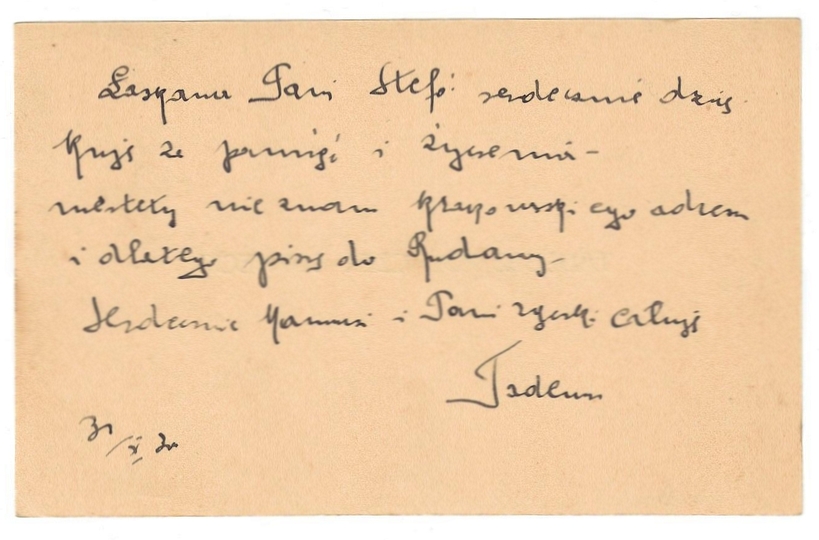 Łaskawa Pani Stefo! serdecznie dzię
kuję za pamięć i życzenia –
niestety nie znam krakowskiego adresu
i dlatego piszę do Rudawy –
Serdecznie Mamusi i Pani rączki całuję
Tadeusz